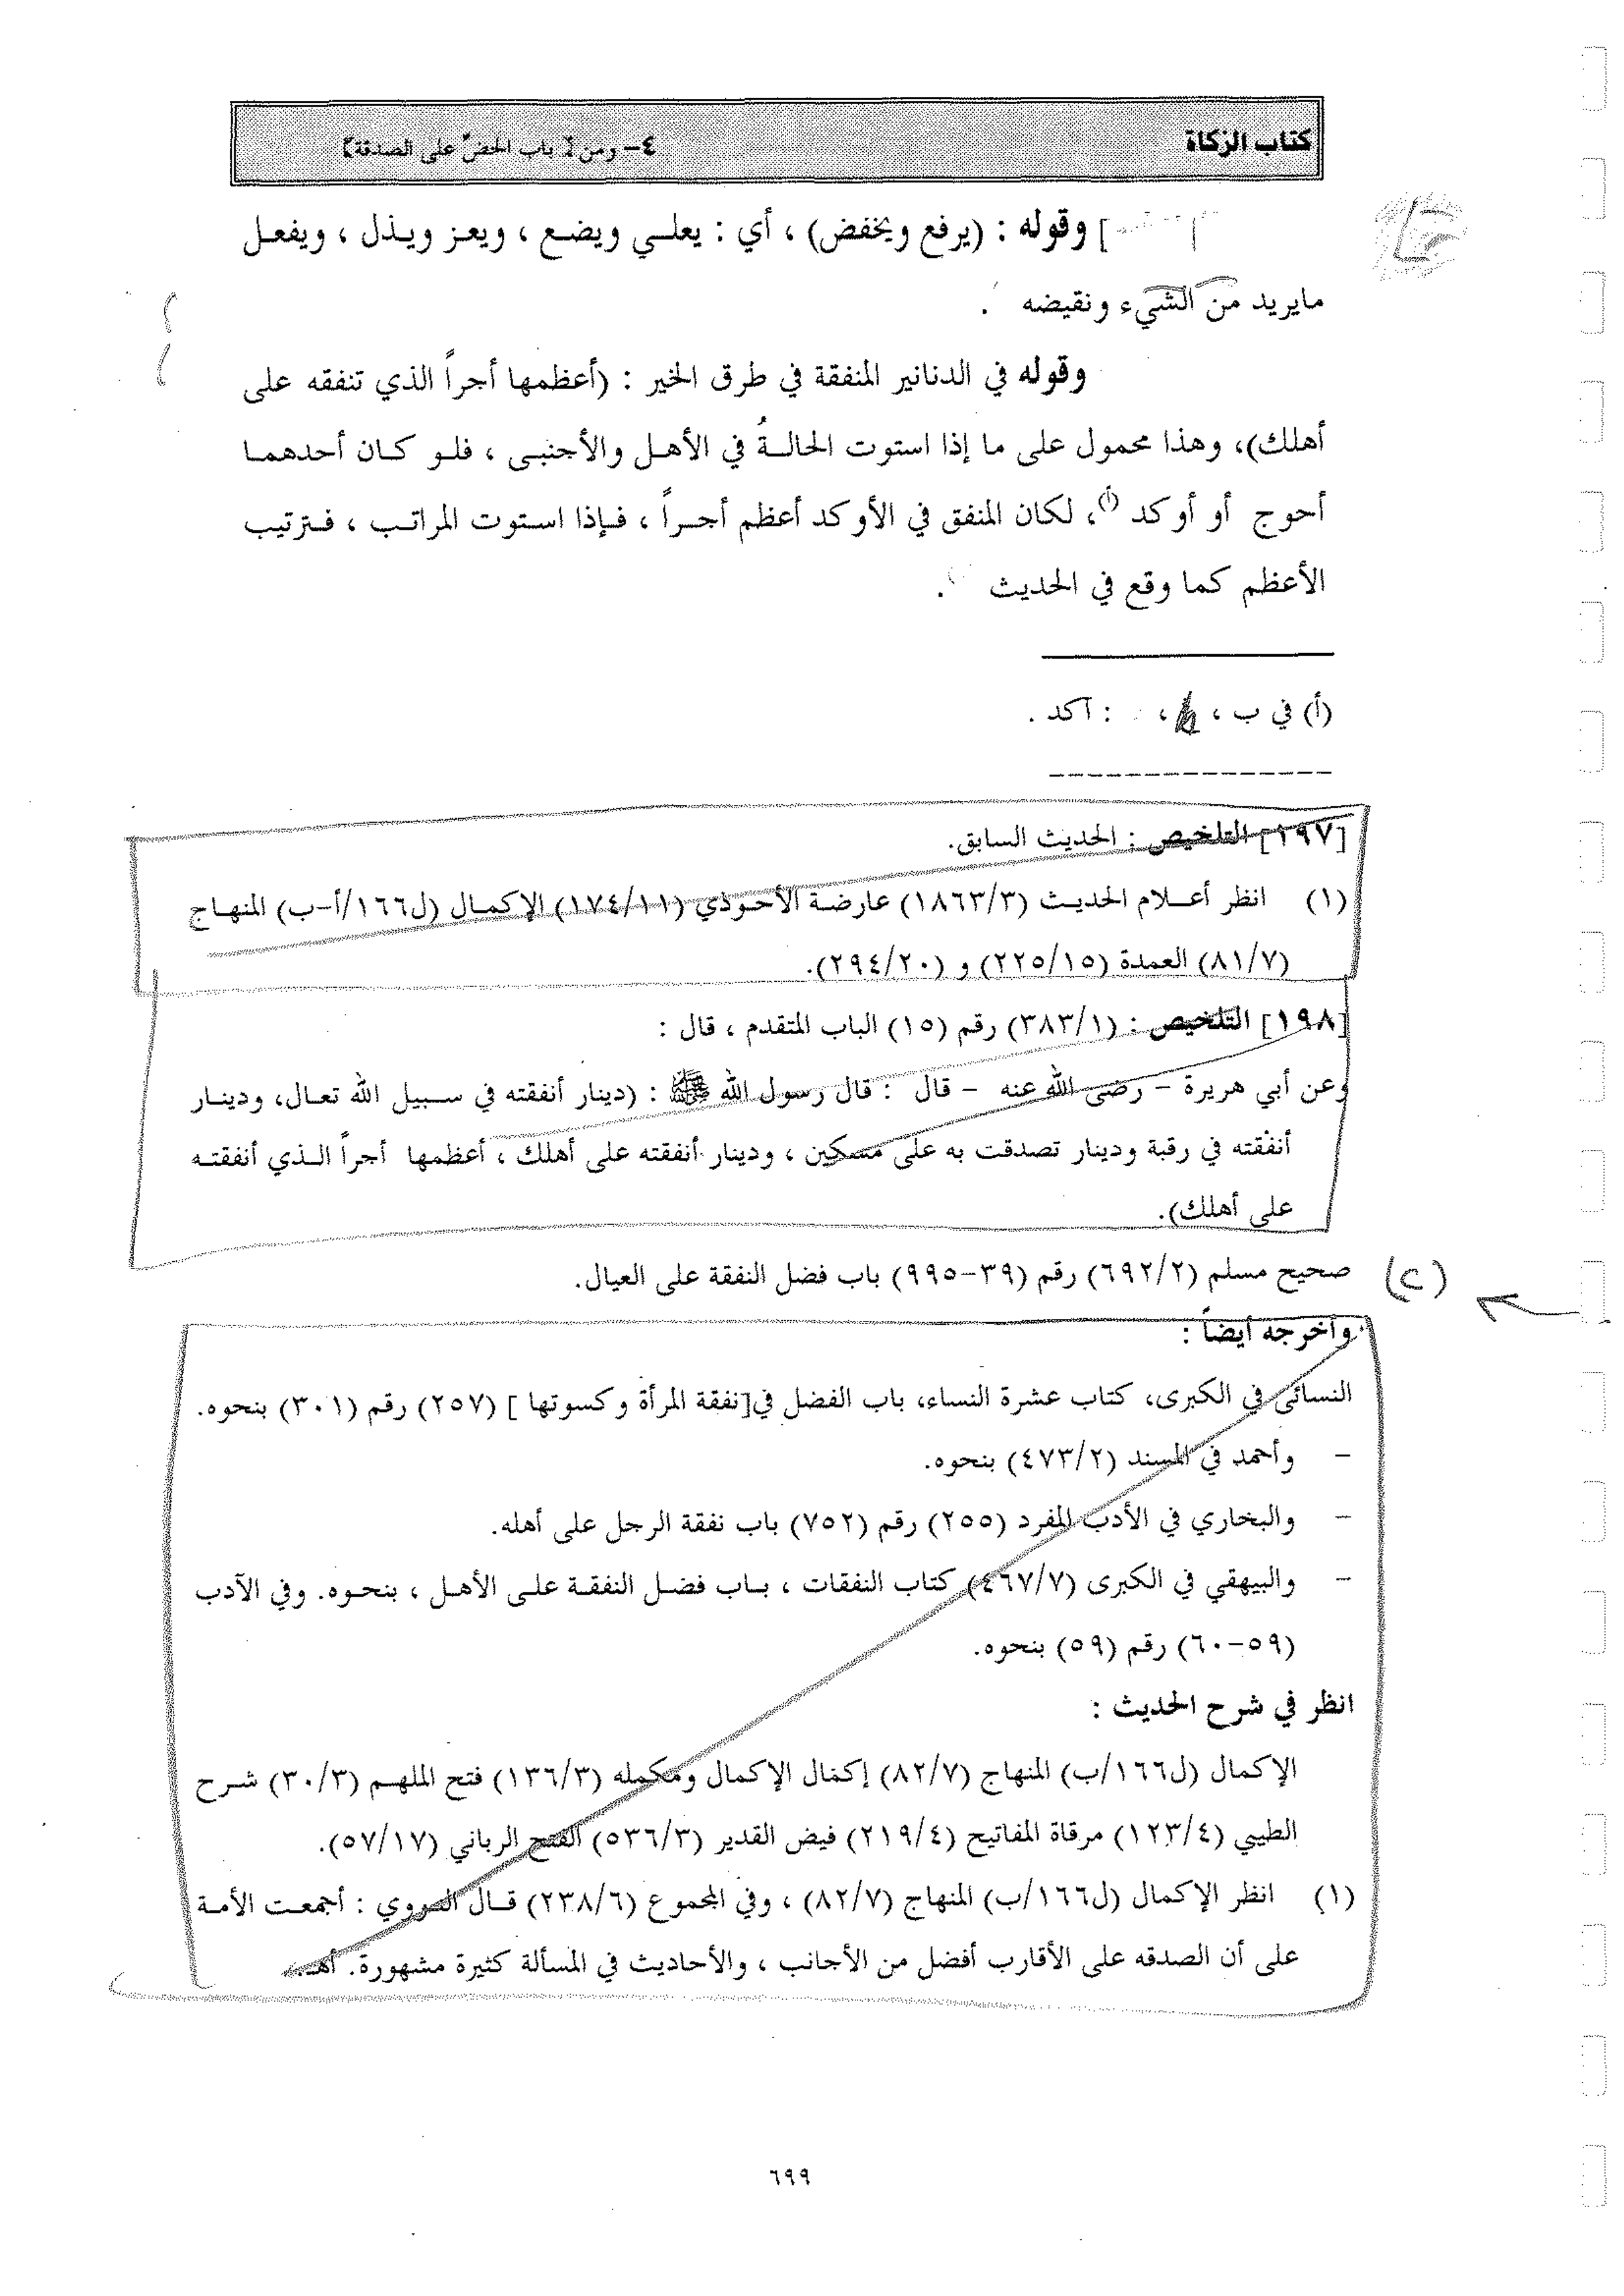 كتاب الزكاة
٤- ومن [ باب الحضّ على الصدقة]
[ ] وقوله : (يرفع ويخفض) ، أي : يعلـي ويضـع ، ويعـز ويـذل ، ويفعـل
مايريد من الشيء ونقيضه .
وقوله في الدنانير المنفقة في طرق الخير : (أعظمها أجراً الذي تنفقه على
أهلك)، وهذا محمول على ما إذا استوت الحالـةُ في الأهـل والأجنبـى ، فلـو كـان أحدهمـا
أحوج أو أوكد (أ)، لكان المنفق في الأوكد أعظم أجـراً ، فـإذا استوت المراتـب ، فـترتيب
الأعظم كما وقع في الحديث .
(أ) في ب ، ، : آكد .
[١٩٧] التلخيص : الحديث السابق.
(١) انظر أعـلام الحديـث (١٨٦٣/٣) عارضـة الأحـوذي (١٧٤/١١) الإكمـال (ل١٦٦/أ-ب) المنهـاج
(٨١/٧) العمدة (٢٢٥/١٥) و (٢٩٤/٢٠).
[١٩٨] التلخيص : (٣٨٣/١) رقم (١٥) الباب المتقدم ، قال :
وعن أبي هريرة - رضى الله عنه - قال : قال رسول الله ﷺ : (دينار أنفقته في سـبيل الله تعـال، ودينـار
أنفقته في رقبة ودينار تصدقت به على مسكين ، ودينار أنفقته على أهلك ، أعظمها أجراً الـذي أنفقتـه
على أهلك).
صحيح مسلم (٦٩٢/٢) رقم (٣٩-٩٩٥) باب فضل النفقة على العيال.
(٢)
وأخرجه أيضاً :
النسائى في الكبرى، كتاب عشرة النساء، باب الفضل في[نفقة المرأة وكسوتها ] (٢٥٧) رقم (٣٠١) بنحوه.
- وأحمد في المسند (٤٧٣/٢) بنحوه.
- والبخاري في الأدب المفرد (٢٥٥) رقم (٧٥٢) باب نفقة الرجل على أهله.
- والبيهقي في الكبرى (٤٦٧/٧) كتاب النفقات ، بـاب فضـل النفقـة علـى الأهـل ، بنحـوه. وفي الآدب
(٥٩-٦٠) رقم (٥٩) بنحوه.
انظر في شرح الحديث :
الإكمال (ل١٦٦/ب) المنهاج (٨٢/٧) إكمال الإكمال ومكمله (١٣٦/٣) فتح الملهـم (٣٠/٣) شـرح
الطيبي (١٢٣/٤) مرقاة المفاتيح (٢١٩/٤) فيض القدير (٥٣٦/٣) الفتح الرباني (٥٧/١٧).
(١) انظر الإكمال (ل١٦٦/ب) المنهاج (٨٢/٧) ، وفي المجموع (٢٣٨/٦) قـال النووي : أجمعـت الأمـة
على أن الصدقه على الأقارب أفضل من الأجانب ، والأحاديث في المسألة كثيرة مشهورة. أهـ.
٦٩٩